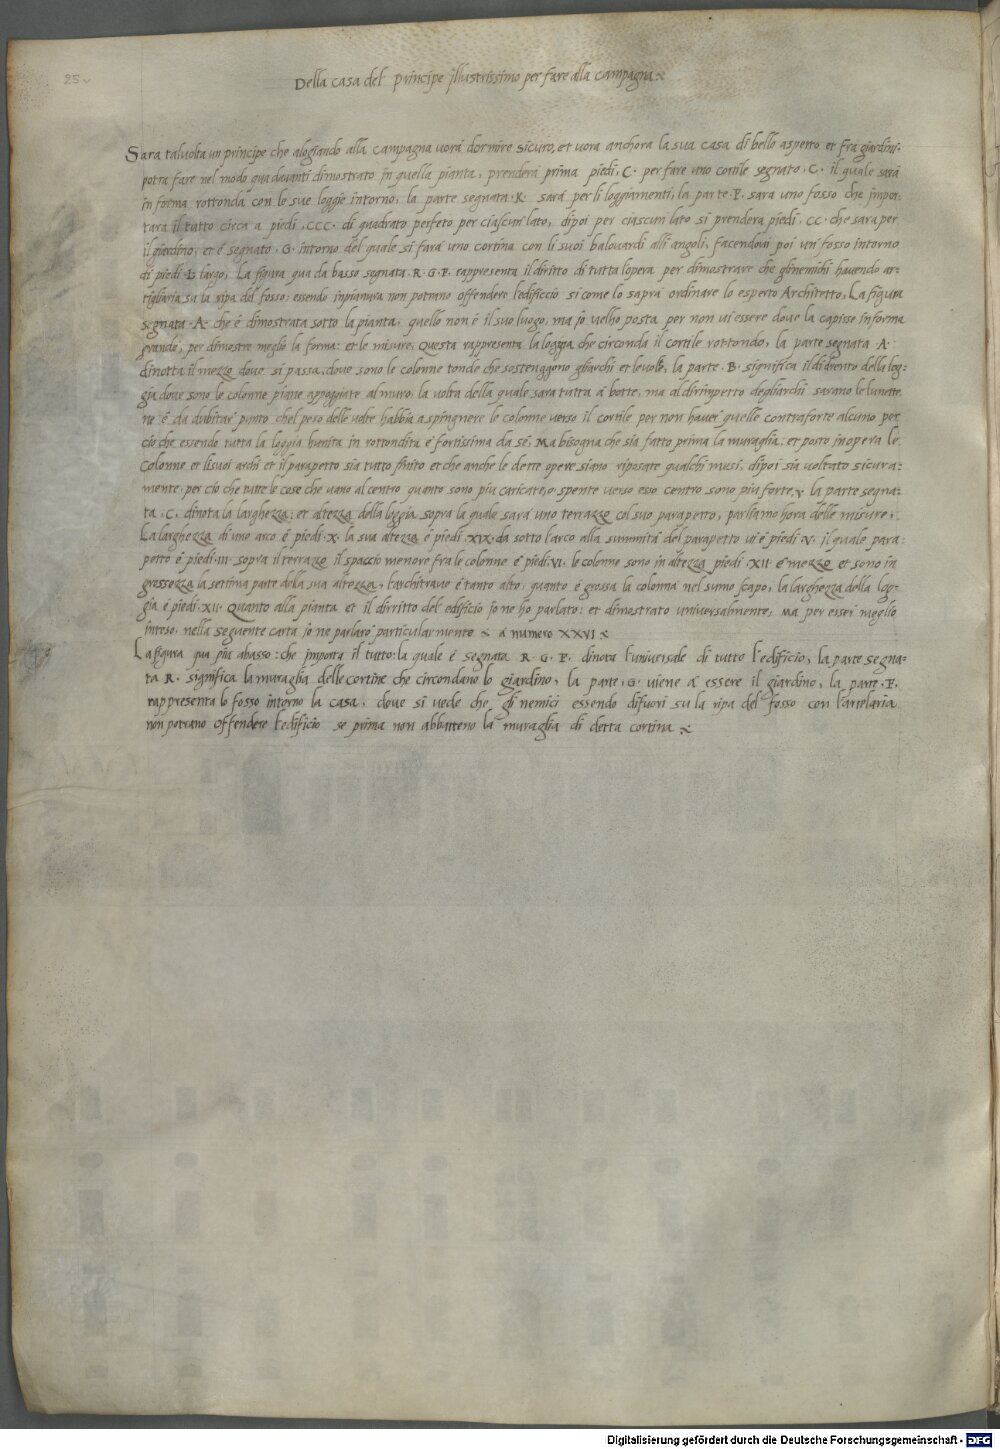 25v
Della casa del principe jllustrissimo per fare alla campagna
Sara talvolta un principe che alogiando alla campagna vora dormire sicuro, et vora anchora la sua casa di bello aspetto et fra giardini.
potra fare nel modo qua davanti dimostrato in quella pianta, prendera prima piedi. C. per fare uno cortile segnato. C. il quale sara
in forma rottonda con le sue loggie intorno, la parte segnata. R. sara per li loggiamenti, la parte. F. sara uno fosso che impor:
tara il tutto circa a piedi. CCC. di quadrato perfeto per ciascun lato, dipoi per ciascun lato si prendera piedi. CC. che sara per
il giardino, et é segnato. G. intorno del quale si fara uno cortina con li suoi balouardi alli angoli, facendoui poi un fosso intorno
di piedi. L. largo, La figura qua da basso segnata. R. G. F. rappresenta il diritto di tutta l'opera per dimostrare che gli nemichi havendo ar:
tigliaria su la ripa del fosso: essendo in pianura non potrano offendere l'edificcio si come lo sapra ordinare lo esperto Architetto, La figura
segnata. A. che é dimostrata sotto la pianta, quello non é il suo luogo, ma jo uelho posta per non ui essere dove la capisse in forma
grande, per dimostre meglio la forma: et le misure, Questa rappresenta la loggia che circonda il cortile rottondo, la parte segnata. A.
dinotta il mezzo dove si passa, dove sono le colonne tonde che sostenggono gliarchi et le volte, la parte. B. significa il didrento della log:
gia dove sono le colonne piane appoggiate al muro, la volta della quale sara tutta á botte, ma al dirimpetto degliarchi sarano le lunette
ne é da dubitar punto chel peso delle volte habbia a spingnere le colonne verso il cortile per non haver quelle contraforte alcuno, per
cio che essendo tutta la loggia hunita in rottondita é fortissima da sé, Ma bisogna che sia fatto prima la muraglia: et posto in opera le
colonne et li suoi archi et il parapetto sia tutto finito et che anche le dette opere siano riposate qualchi mesi, dipoi sia voltato sicura:
mente, per cio che tutte le cose che vano al centro quanto sono piu caricate, o spente verso esso centro sono piu forte, la parte segna:
ta. C. dinota la larghezza: et altezza della loggia sopra la quale sara uno terrazzo col suo parapetto, parliamo hora delle misure,
La larghezza di uno arco é piedi. X. la sua altezza é piedi. XIX. da sotto l'arco alla summita del parapetto ui é piedi. V. il quale para
petto é piedi. III. sopra il terrazzo il spaccio menore fra le colonne é piedi. VI. le colonne sono in altezza piedi. XII. é mezzo et sono in
grossezza la settima parte della sua altezza, l'architrave é tanto alto, quanto é grossa la colonna nel sumo scapo, la larghezza della log:
gia é piedi. XII. Quanto alla pianta et il dirritto del edificio jo ne ho parlato: et dimostrato universalmente, Ma per esser meglio
inteso, nella seguente carta jo ne parlaro particularmente á numero XXVI
La figura qua piu abasso: che importa il tutto: la quale é segnata R. G. F. dinota l'universale di tutto l'edificio, la parte segna:
ta R. significa la muraglia delle cortine che circondano lo giardino, la parte. G. viene á essere il giardino, la parte. F.
rappresenta lo fosso intorno la casa, dove si vede che gli nemici essendo difuori su la ripa del fosso con l'artelaria
non potrano offendere l'edificio se prima non abbatteno la muraglia di detta cortina
Digitalisierung gefördert durch die Deutsche Forschungsgemeinschaft - DFG